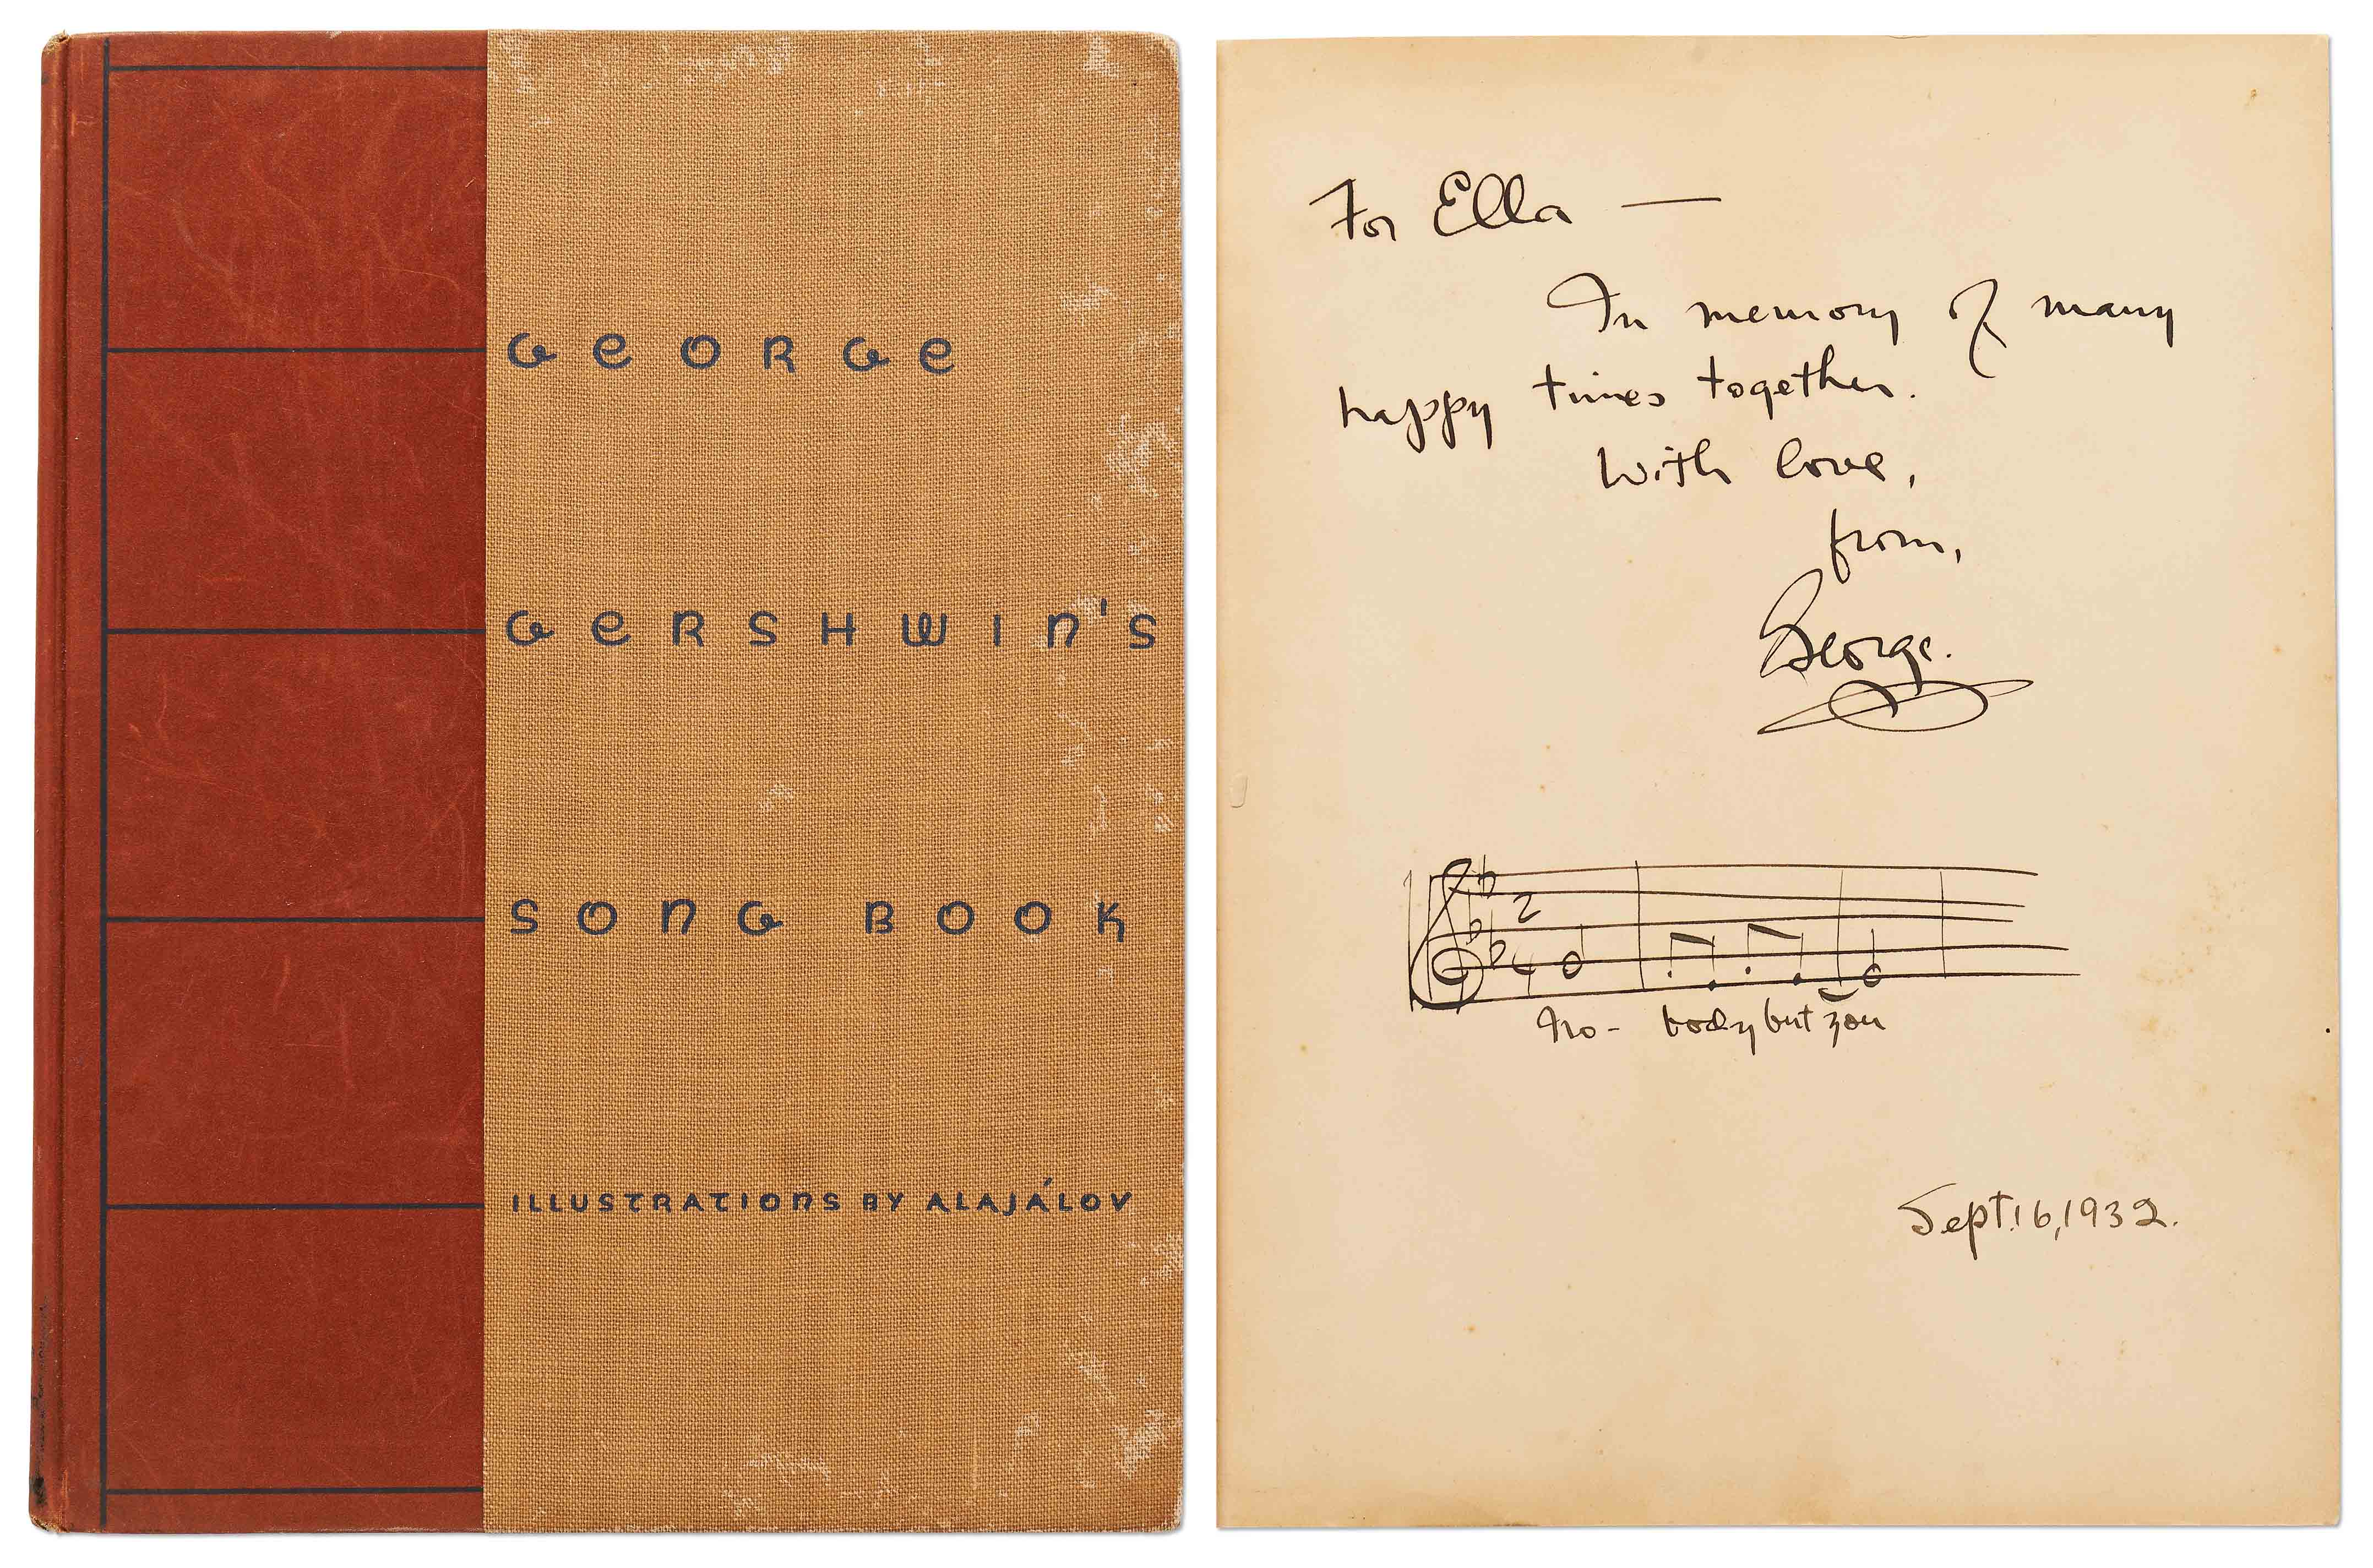 GEORGE
GERSHWIN'S
SONG BOOK
ILLUSTRATIONS BY ALAJÁLOV
For Ella —
In memory of many
happy times together.
With love,
from,
George.
2
4
No- body but you
Sept. 16, 1932.